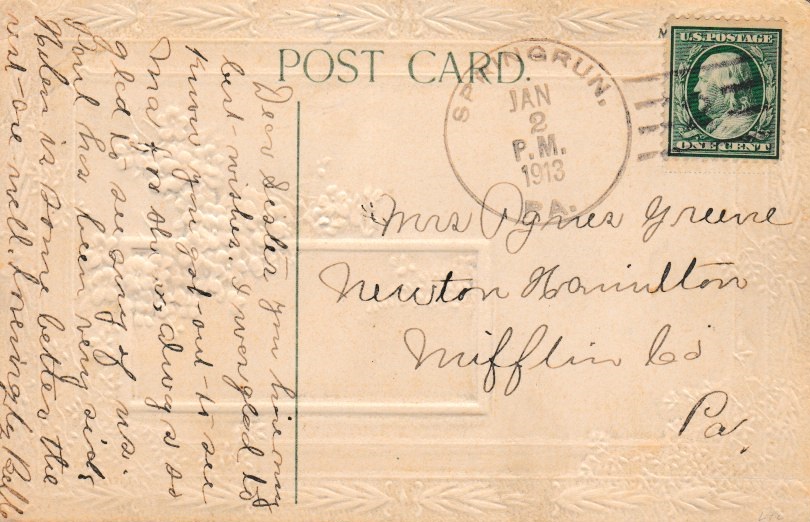 POST CARD.
SPRINGRUN.
JAN
2
P.M.
1913
PA.
U.S. POSTAGE
ONE CENT
Mrs Agnes Greene
Newton Hamilton
Mifflin Co
Pa.
Dear Sister you have my
best-wishes. I was glad to
know you got-out-to see
Ma for she is always so
glad to see any of us.
Paul has been very sick
Helen is some better the
rest-are well. Lovingly Bell